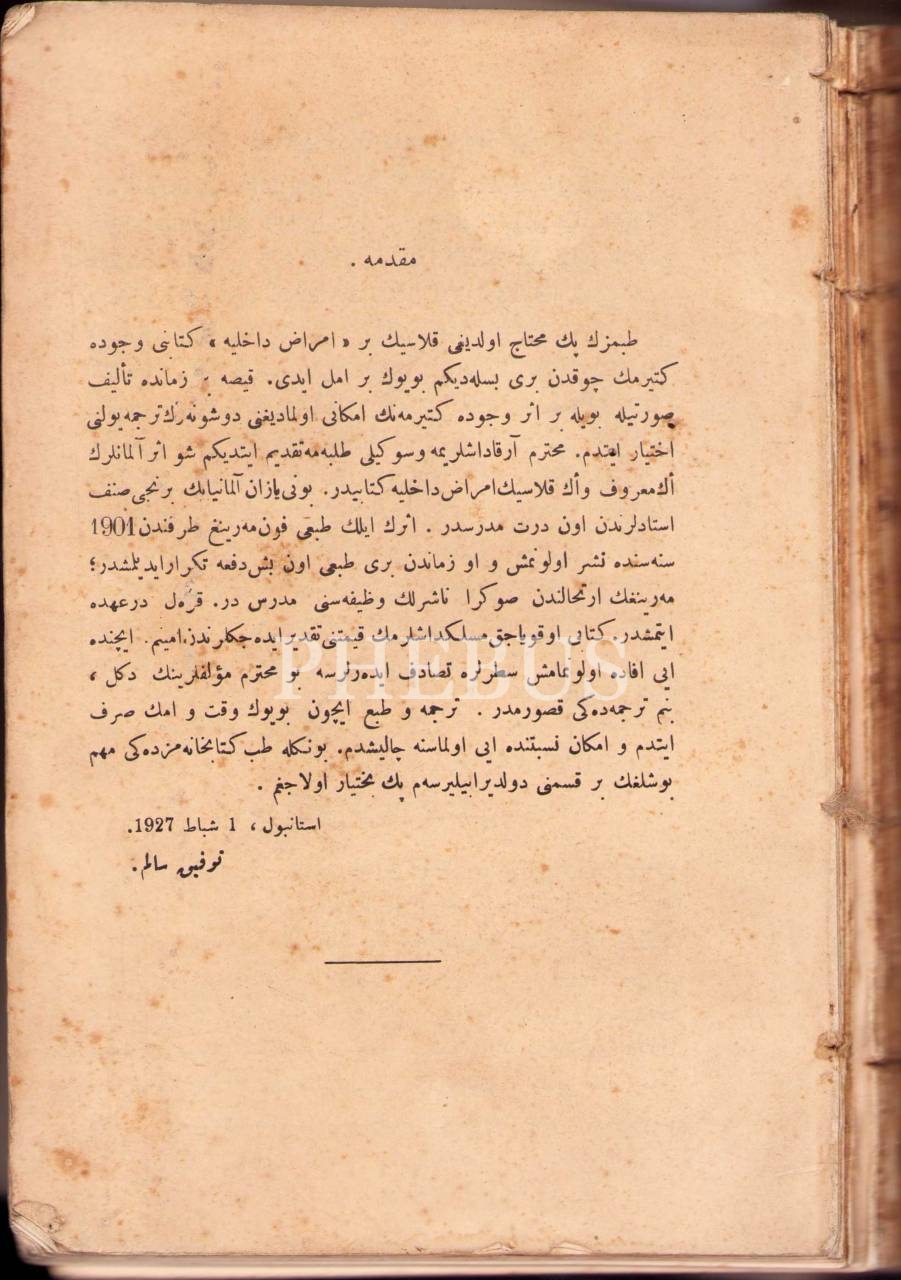 مقدمه .
طبمزك پك محتاج اولديغى قلاسيك بر « امراض داخليه » كتابنى وجوده
كتيرمك چوقدن برى بسله‌ديكم بويوك بر امل ايدى. قيصه بر زمانده تأليف
صورتيله بويله بر اثر وجوده كتيرمه‌نك امكانى اولماديغنى دوشونه‌رك ترجمه يولنى
اختيار ايتدم. محترم آرقاداشلريمه و سوكيلى طلبه‌مه تقديم ايتديكم شو اثر آلمانلرك
اك معروف و اك قلاسيك امراض داخليه كتابيدر. بونى يازان آلمانيانك برنجى صنف
استادلرندن اون درت مدرسدر . اثرك ايلك طبعى فون مه‌رينغ طرفندن 1901
سنه‌سنده نشر اولونمش و او زماندن برى طبعى اون بش دفعه تكرار ايديلمشدر؛
مه‌رينغك ارتحالندن صوكرا ناشرلك وظيفه‌سنى مدرس در. قره‌ل درعهده
ايتمشدر. كتابى اوقوياجق مسلكداشلرمك قيمتنى تقدير ايده‌جكلرندن امينم. ايچنده
ايى افاده اولونمامش سطرلره تصادف ايده‌رلرسه بو محترم مؤلفلرينك دكل ،
بنم ترجمه‌ده‌كى قصورمدر . ترجمه و طبع ايچون بويوك وقت و امك صرف
ايتدم و امكان نسبتنده ايى اولماسنه چاليشدم. بونكله طب كتابخانه‌مزده‌كى مهم
بوشلغك بر قسمنى دولديرابيليرسه‌م پك بختيار اولاجغم .
استانبول ، 1 شباط 1927.
توفيق سالم.
PHEBUS